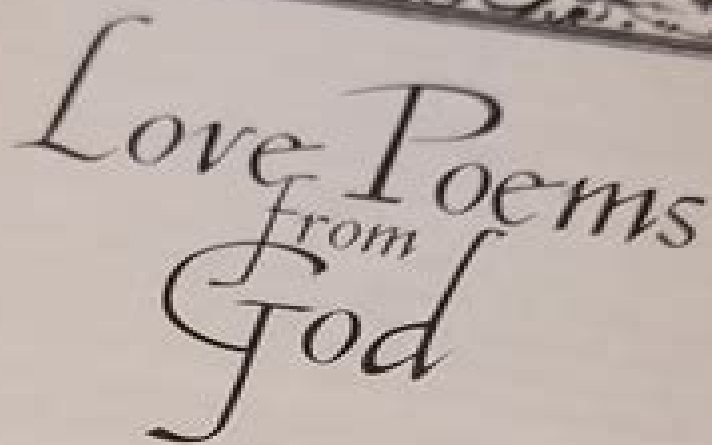 Love Poems
from
God